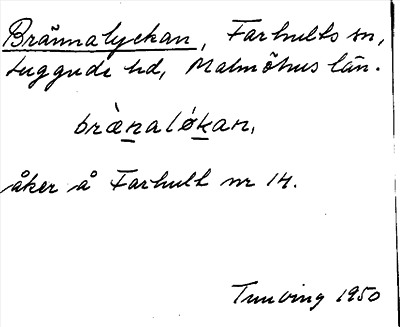 Brännalyckan, Farhults sn,
Luggude hd, Malmöhus län.
brànalókan,
åker å Farhult nr 14.
Tunving 1950